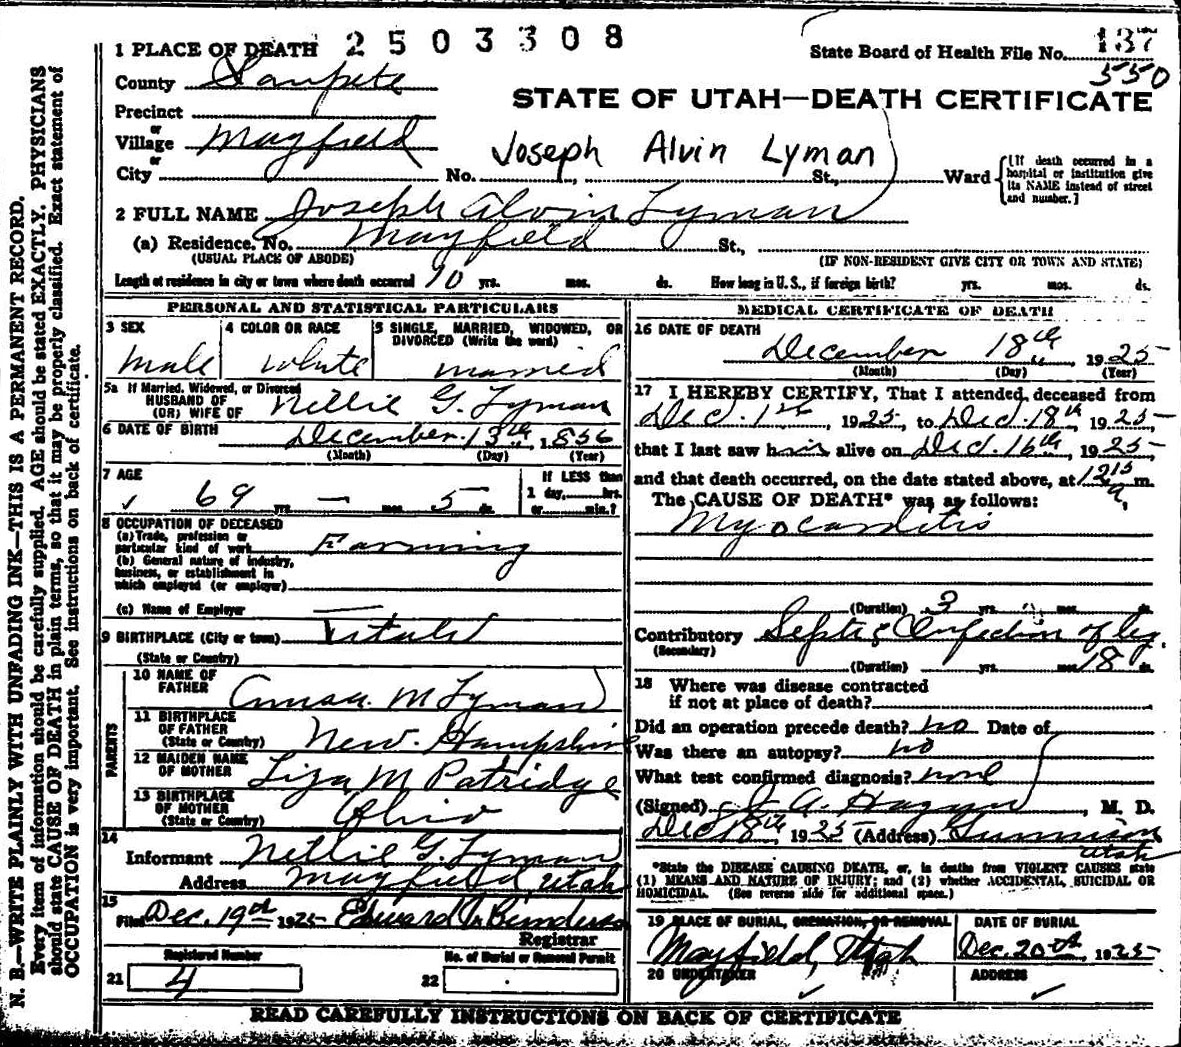 2503308
1 PLACE OF DEATH
State Board of Health File No. 137
550
County Sanpete
STATE OF UTAH—DEATH CERTIFICATE
Precinct
or
Village Mayfield
or
Joseph Alvin Lyman
City No. St., Ward
[If death occurred in a hospital or institution give its NAME instead of street and number.]
2 FULL NAME Joseph Alvin Lyman
(a) Residence, No. Mayfield St.,
(USUAL PLACE OF ABODE) (IF NON-RESIDENT GIVE CITY OR TOWN AND STATE)
Length of residence in city or town where death occurred 10 yrs. mos. ds. How long in U. S., if foreign birth? yrs. mos. ds.
PERSONAL AND STATISTICAL PARTICULARS
3 SEX 4 COLOR OR RACE 5 SINGLE, MARRIED, WIDOWED, OR DIVORCED (Write the word)
Male White Married
5a If Married, Widowed, or Divorced
HUSBAND OF
(OR) WIFE OF Nellie G. Lyman
6 DATE OF BIRTH December 13th, 1856
(Month) (Day) (Year)
7 AGE If LESS than
69 yrs. — mos. 5 ds. 1 day, hrs.
or min.?
8 OCCUPATION OF DECEASED
(a) Trade, profession or
particular kind of work Farming
(b) General nature of industry,
business, or establishment in
which employed (or employer)
(c) Name of Employer
9 BIRTHPLACE (City or town)
(State or Country)
PARENTS
10 NAME OF
FATHER M Lyman
11 BIRTHPLACE
OF FATHER
(State or Country) New Hampshire
12 MAIDEN NAME
OF MOTHER Liza M Patridge
13 BIRTHPLACE
OF MOTHER
(State or Country) Ohio
14
Informant Nellie G. Lyman
Address Mayfield, Utah
15
Filed Dec. 19th 1925 Edward
Registrar
Registered Number No. of Burial or Removal Permit
21 4 22
MEDICAL CERTIFICATE OF DEATH
16 DATE OF DEATH
December 18th, 1925
(Month) (Day) (Year)
17 I HEREBY CERTIFY, That I attended deceased from
Dec. 1st 1925, to Dec. 18th 1925
that I last saw him alive on Dec. 16th, 1925
and that death occurred, on the date stated above, at 12 15 a m.
The CAUSE OF DEATH* was as follows:
Myocarditis
(Duration) 3 yrs. mos. ds.
Contributory Septic Infection of leg
(Secondary)
(Duration) yrs. mos. 18 ds.
18 Where was disease contracted
if not at place of death?
Did an operation precede death? no Date of
Was there an autopsy? no
What test confirmed diagnosis? none
(Signed) J A Hagan, M. D.
Dec 18th, 1925 (Address) Gunnison
Utah
*State the DISEASE CAUSING DEATH, or, in deaths from VIOLENT CAUSES state
(1) MEANS AND NATURE OF INJURY; and (2) whether ACCIDENTAL, SUICIDAL OR
HOMICIDAL. (See reverse side for additional space.)
19 PLACE OF BURIAL, CREMATION, OR REMOVAL DATE OF BURIAL
Mayfield, Utah Dec. 20th, 1925
20 UNDERTAKER ADDRESS
READ CAREFULLY INSTRUCTIONS ON BACK OF CERTIFICATE
N. B.—WRITE PLAINLY WITH UNFADING INK—THIS IS A PERMANENT RECORD.
Every item of information should be carefully supplied. AGE should be stated EXACTLY. PHYSICIANS
should state CAUSE OF DEATH in plain terms, so that it may be properly classified. Exact statement of
OCCUPATION is very important. See instructions on back of certificate.